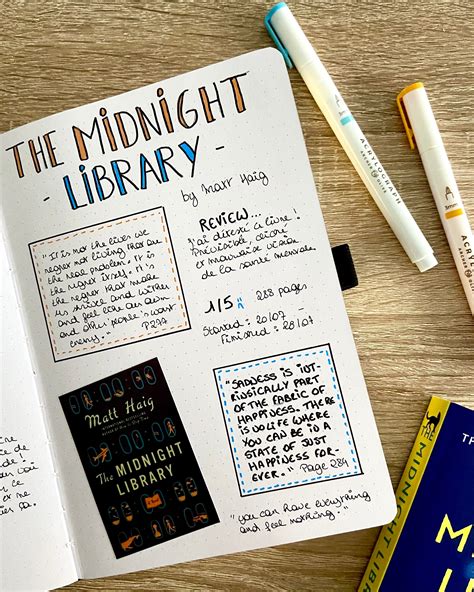 THE MIDNIGHT
- LIBRARY -
by Matt Haig
"It is not the lives we
regret not living that are
the real problem. It is
the regret itself. It's
the regret that makes
us shrive and wither
and feel like our own
and other people's worst
enemy."
P277
REVIEW...
J'ai détesté ce livre!
Prévisible, cliché
et mauvaise vision
de la santé mentale.
1/5
288 pages
Started: 20/07
Finished: 28/07
Matt Haig
The
MIDNIGHT
LIBRARY
"SADNESS IS INT-
RINSICALLY PART
OF THE FABRIC OF
HAPPINESS. THERE
IS NO LIFE WHERE
YOU CAN BE IN A
STATE OF JUST
HAPPINESS FOR-
EVER."
Page 284
"you can have everything
and feel nothing."
ACRYLOGRAPH
ARCHER & OLIVE
THE MIDNIGHT LIB
M
L